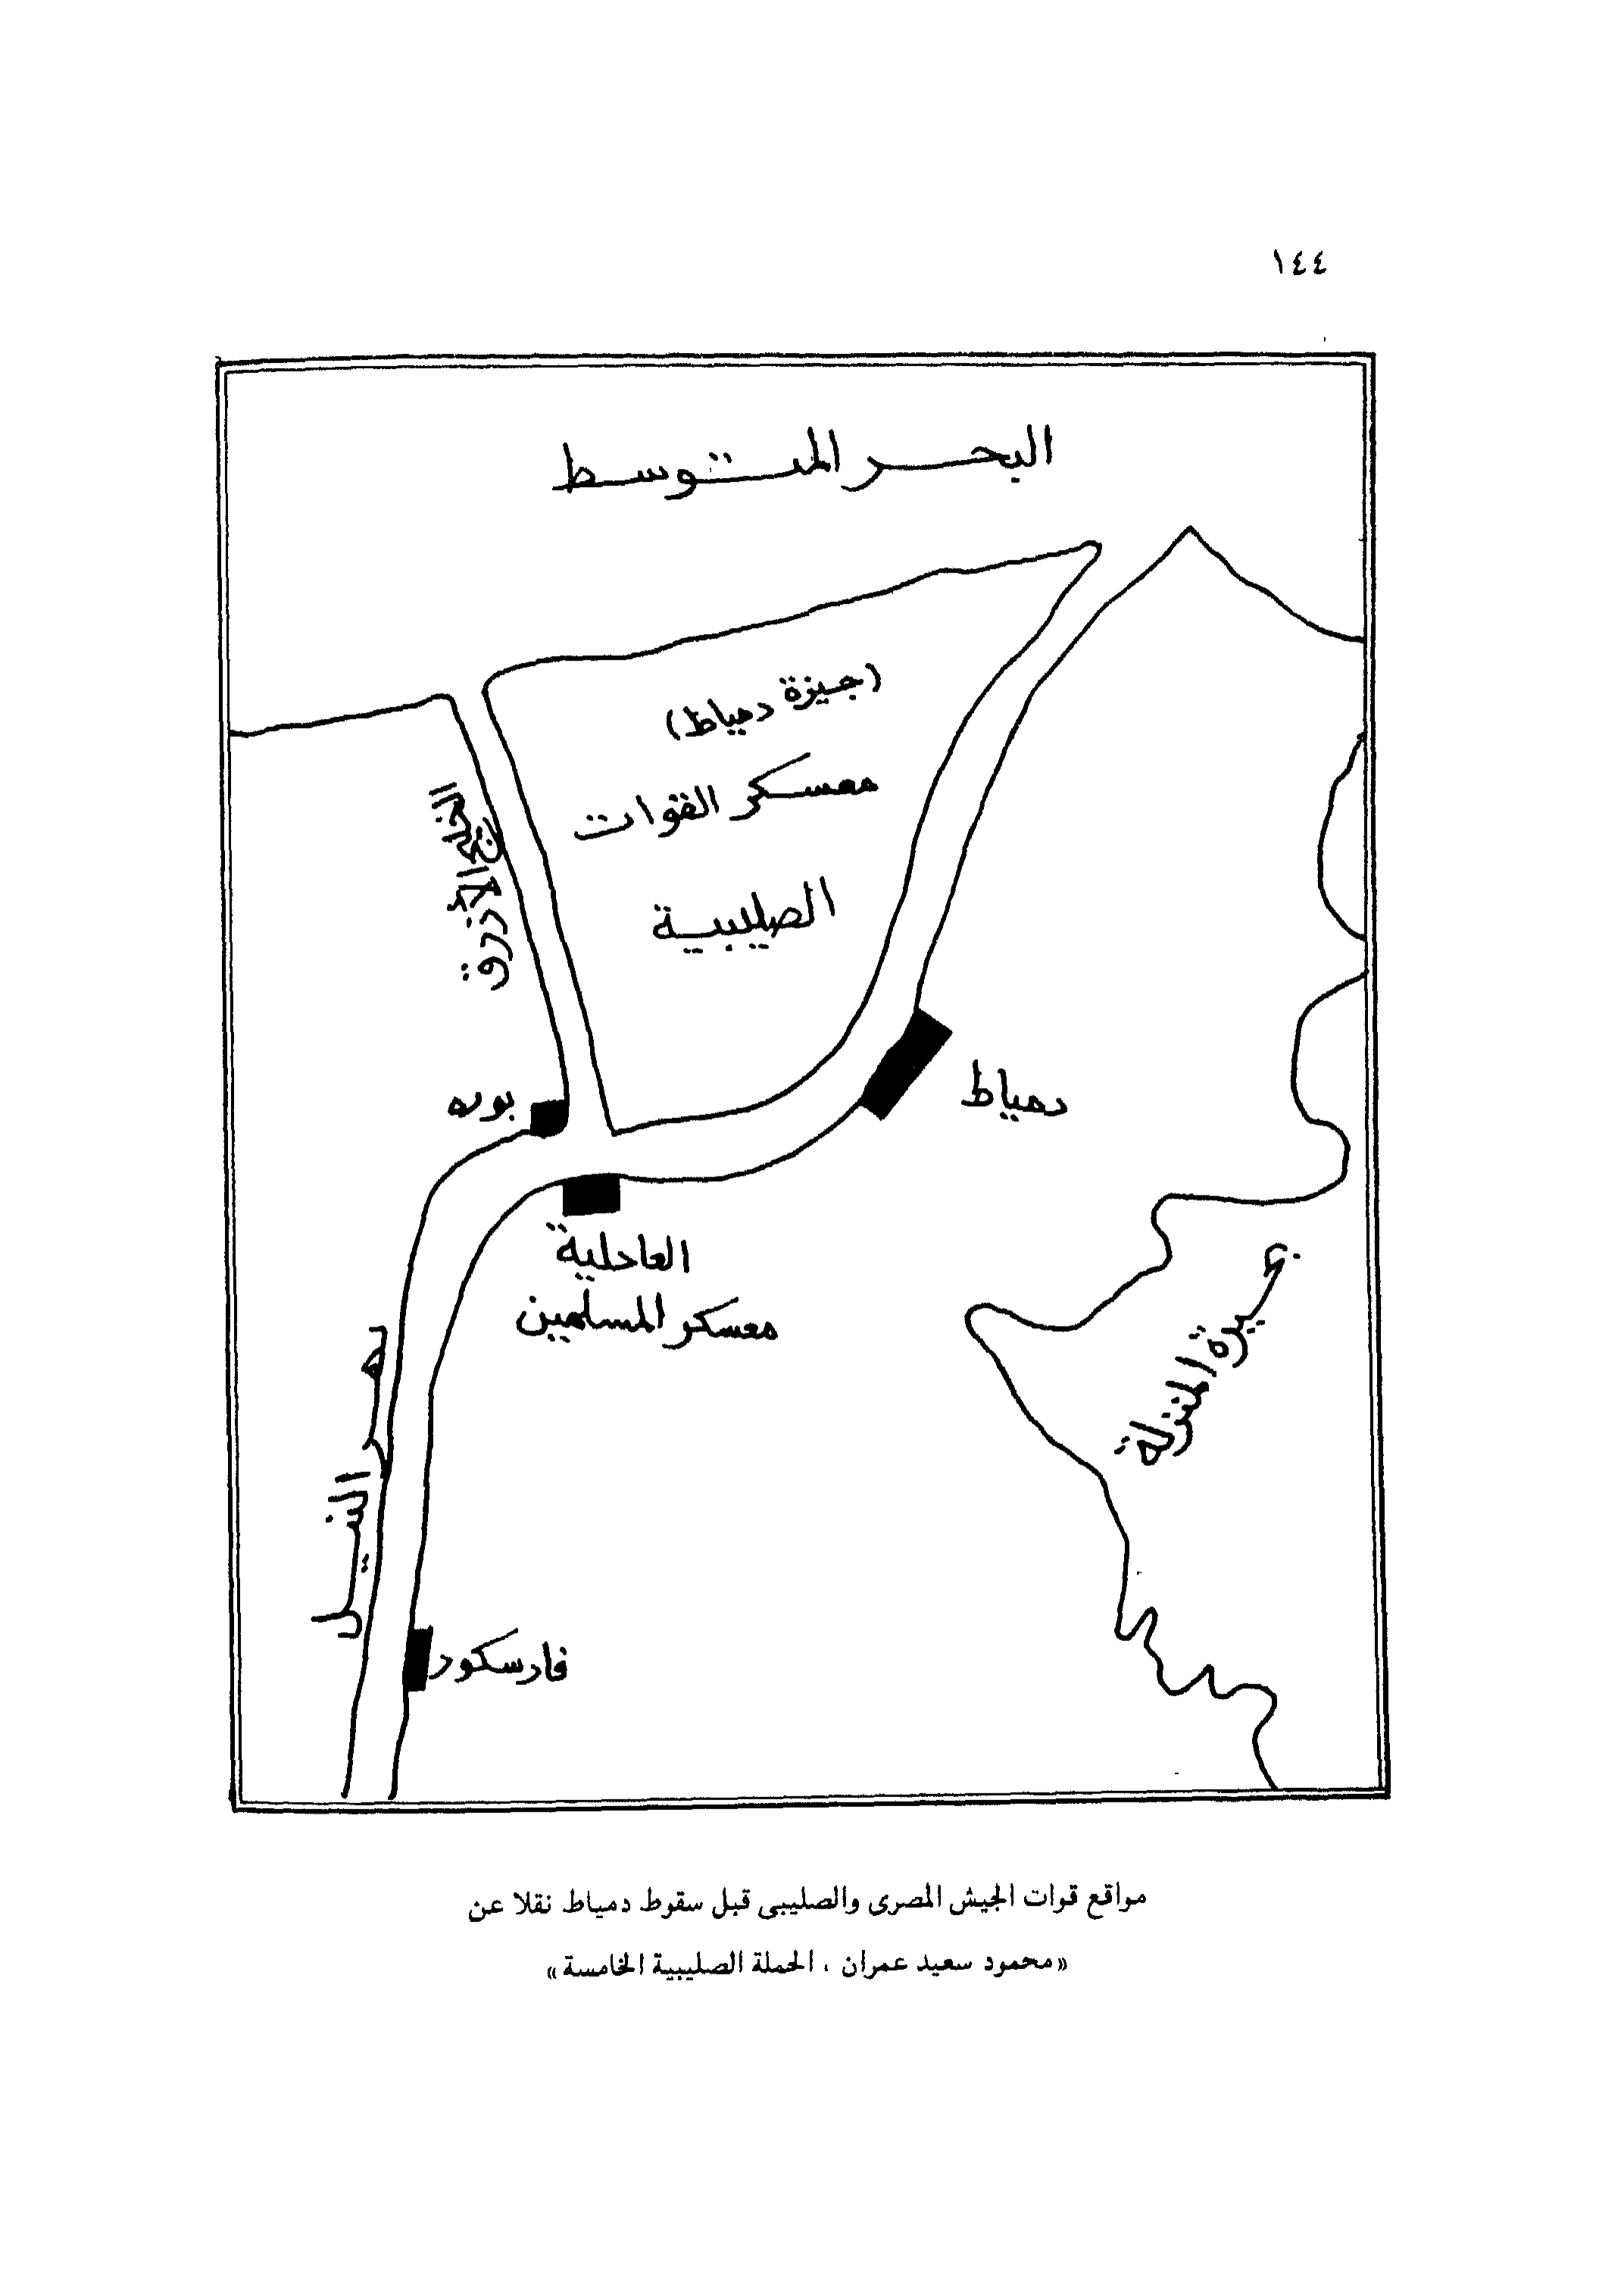 ١٤٤
البحر المتوسط
(جيزة دمياط)
معسكر القوات
الصليبية
الخليج الأزرق
بوره
دمياط
العادلية
معسكر المسلمين
بحيرة المنزلة
نهر النيل
فارسكور
مواقع قوات الجيش المصرى والصليبى قبل سقوط دمياط نقلا عن
«محمود سعيد عمران ، الحملة الصليبية الخامسة»